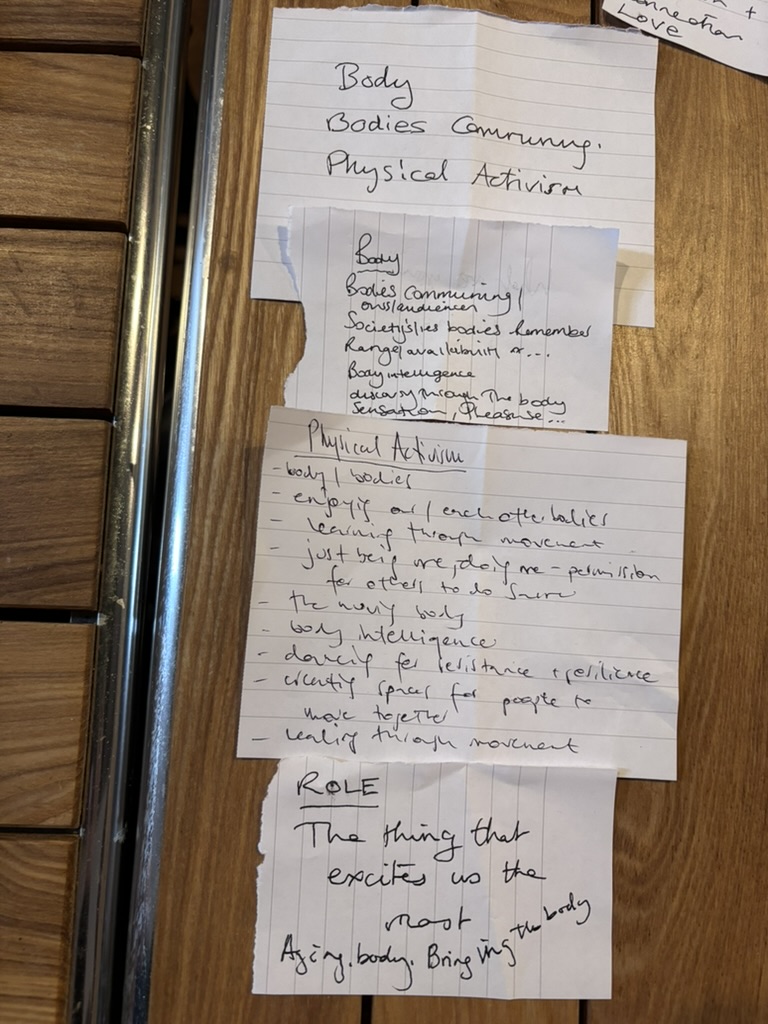 +
Connection
LOVE
Body
Bodies Communing.
Physical Activism
Body
Bodies Communing/
ours/audiences
Society's/ies bodies Remember
Range/availability ...
Body intelligence
discovery through The body
Sensation, Pleasure...
Physical Activism
- body / bodies
- enjoying our / each other bodies
- learning through movement
- just being me, doing me - permission
for others to do same
- the moving body
- body intelligence
- dancing for resistance + resilience
- creating spaces for people to
move together
- healing through movement
ROLE
The thing that
excites us the
most
Aging. body. Bringing the body